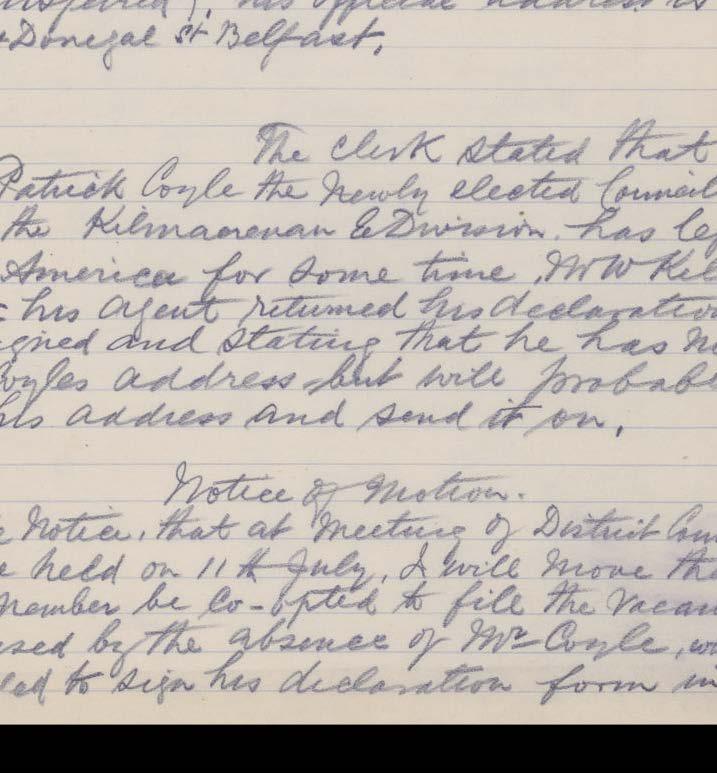 nsferred), his official address is
Donegal St Belfast.
The Clerk stated that
Patrick Coyle the newly elected Councill
the Kilmacrenan E Division. has lef
America for some time, Mr W Kel
his agent returned his declaration
igned and stating that he has no
Coyles address but will probabl
his address and send it on.
Notice of Motion.
e Notice, that at Meeting of District Coun
e held on 11th July, I will move tha
member be Co-opted to fill the Vacan
used by the absence of Mr Coyle, w
led to sign his declaration form in